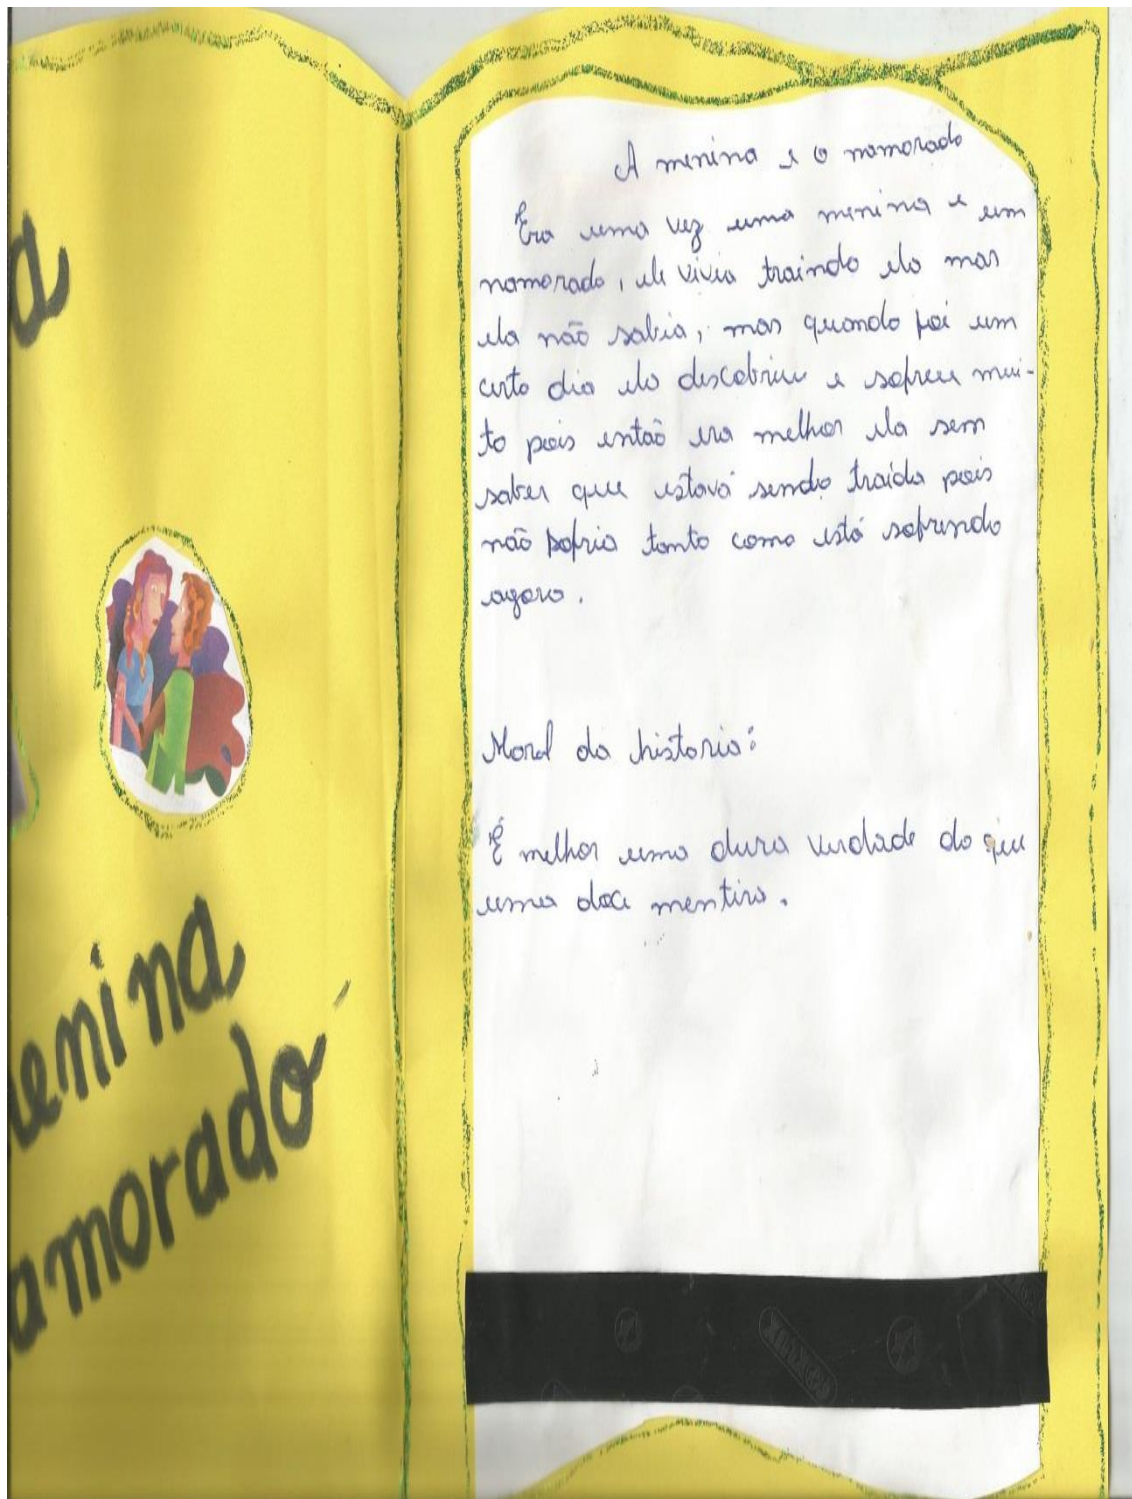 a
enina
amorado
A menina e o namorado
Era uma vez uma menina e um
namorado, ele vivia traindo ela mas
ela não sabia, mas quando foi um
certo dia ela descobriu e sofreu mui-
to pois então era melhor ela sem
saber que estava sendo traida pois
não sofria tanto como está sofrendo
agora.
Moral da historia:
É melhor uma dura verdade do que
uma doce mentira.